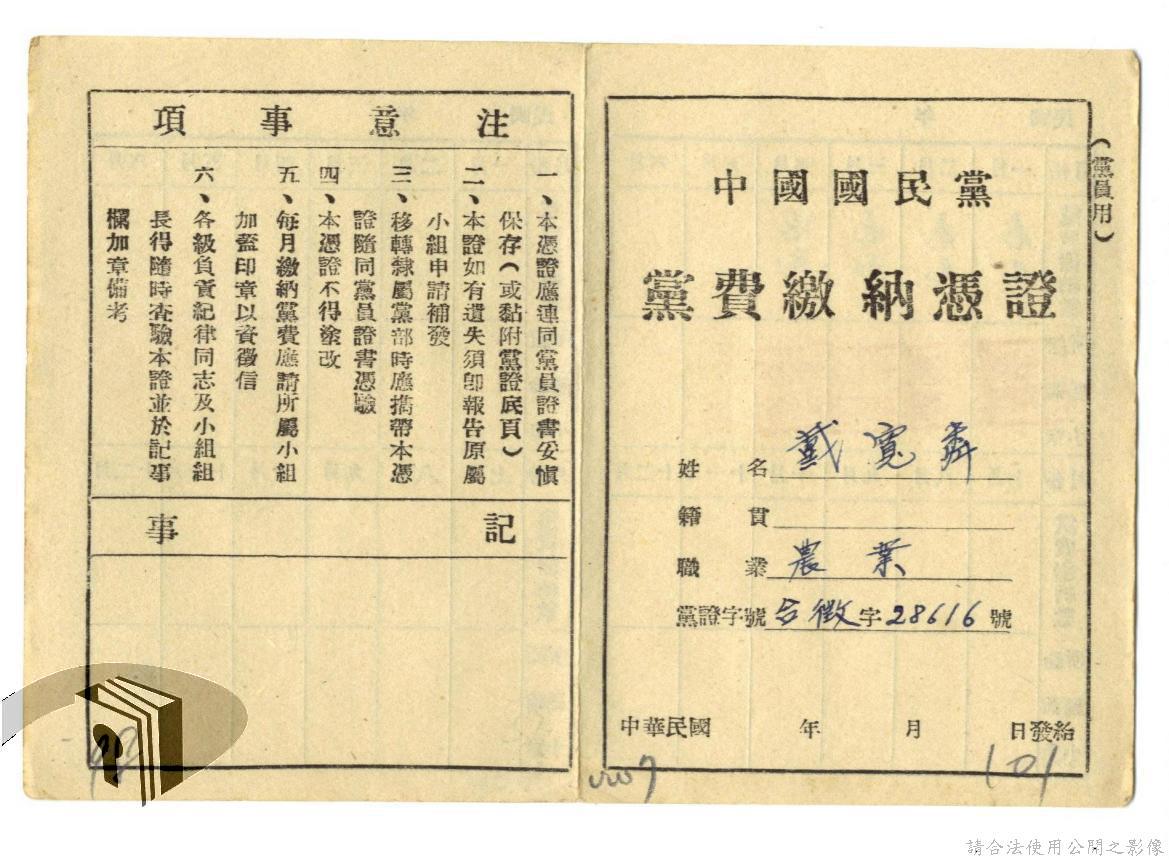 (黨員用)
中國國民黨
黨費繳納憑證
姓名 戴寬舜
籍貫
職業 農業
黨證字號 台徵字28616號
中華民國 年 月 日發給
101
注意事項
一、本憑證應連同黨員證書妥慎
保存(或黏附黨證底頁)
二、本證如有遺失須卽報告原屬
小組申請補發
三、移轉隸屬黨部時應攜帶本憑
證隨同黨員證書憑驗
四、本憑證不得塗改
五、每月繳納黨費應請所屬小組
加蓋印章以資徵信
六、各級負責紀律同志及小組組
長得隨時查驗本證並於記事
欄加章備考
記事
請合法使用公開之影像